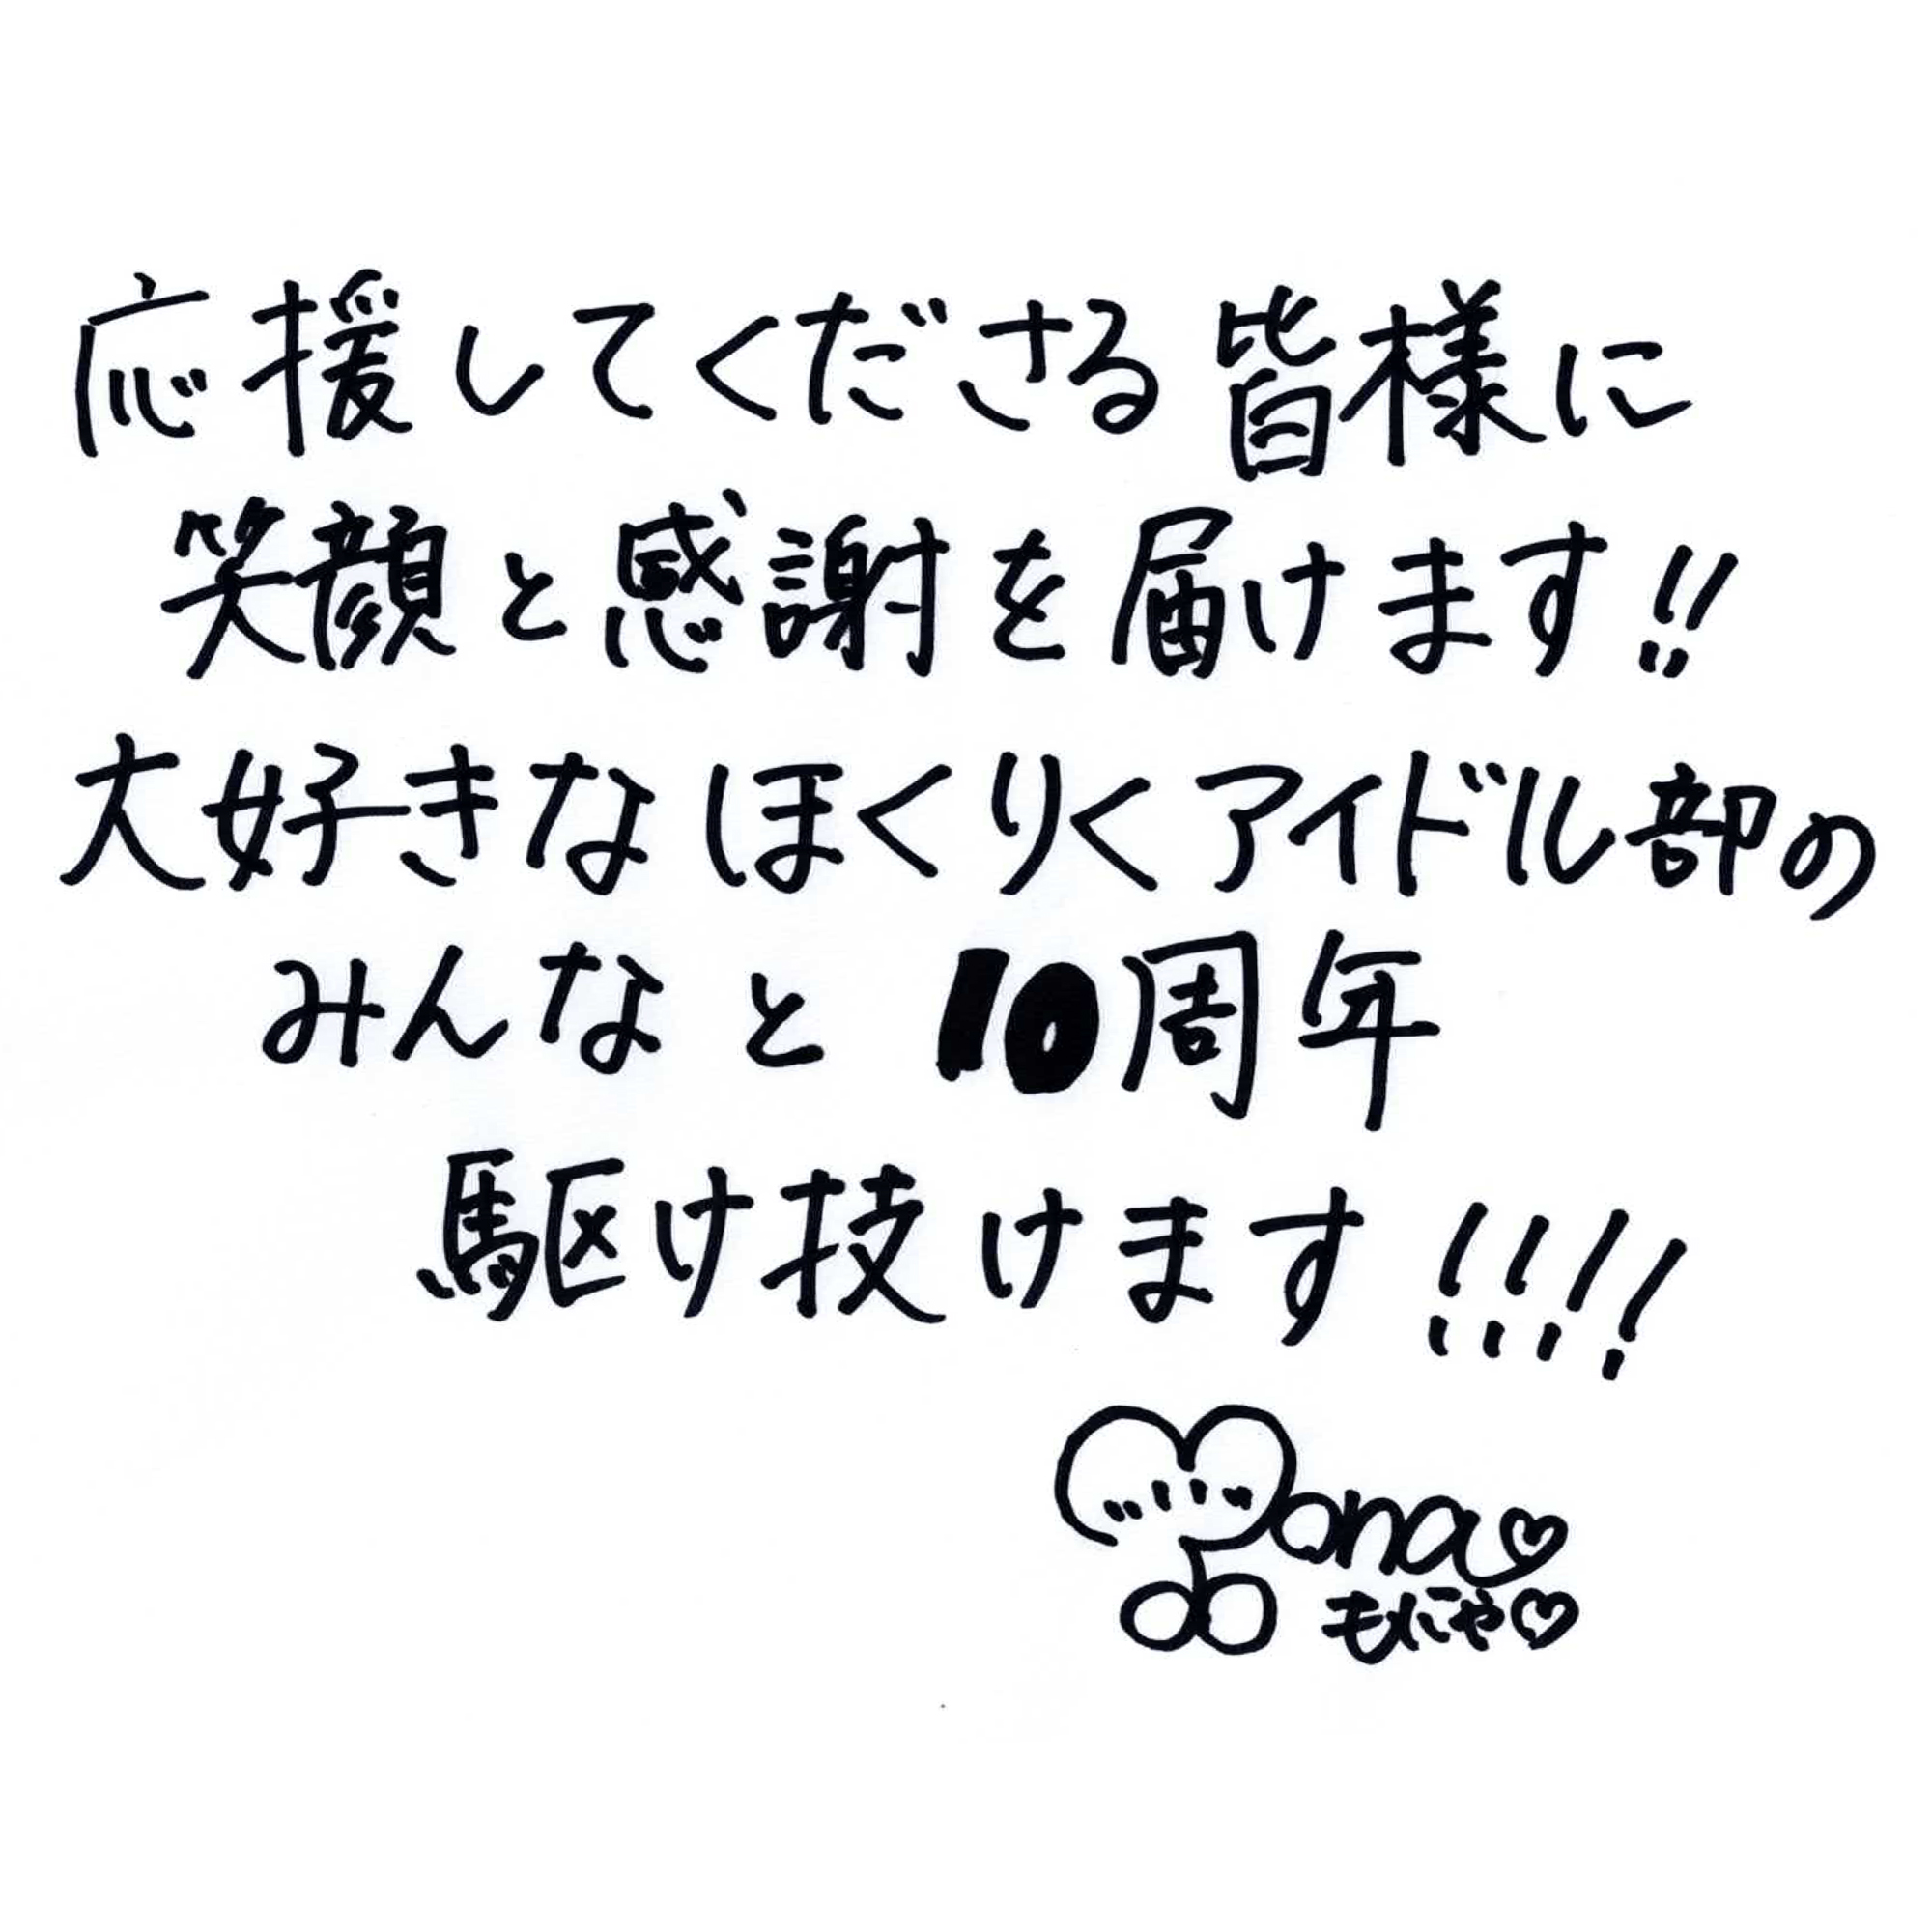 応援してくださる皆様に
笑顔と感謝を届けます!!
大好きなほくりくアイドル部の
みんなと10周年
駆け抜けます!!!!
Mona♡
もにゃ♡